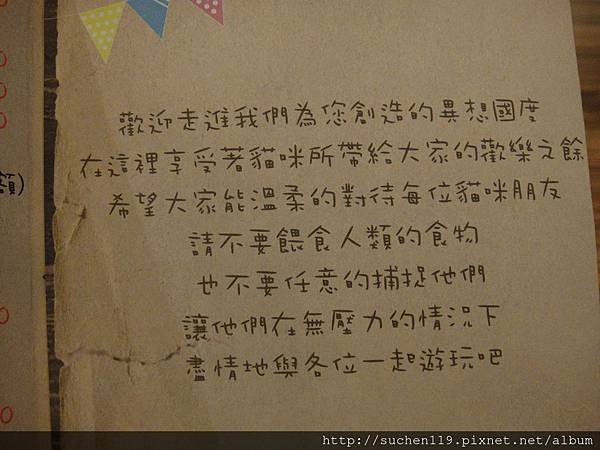 歡迎走進我們為您創造的異想國度
在這裡享受著貓咪所帶給大家的歡樂之餘
希望大家能溫柔的對待每位貓咪朋友
請不要餵食人類的食物
也不要任意的捕捉他們
讓他們在無壓力的情況下
盡情地與各位一起遊玩吧
額)
http://suchen119.pixnet.net/album